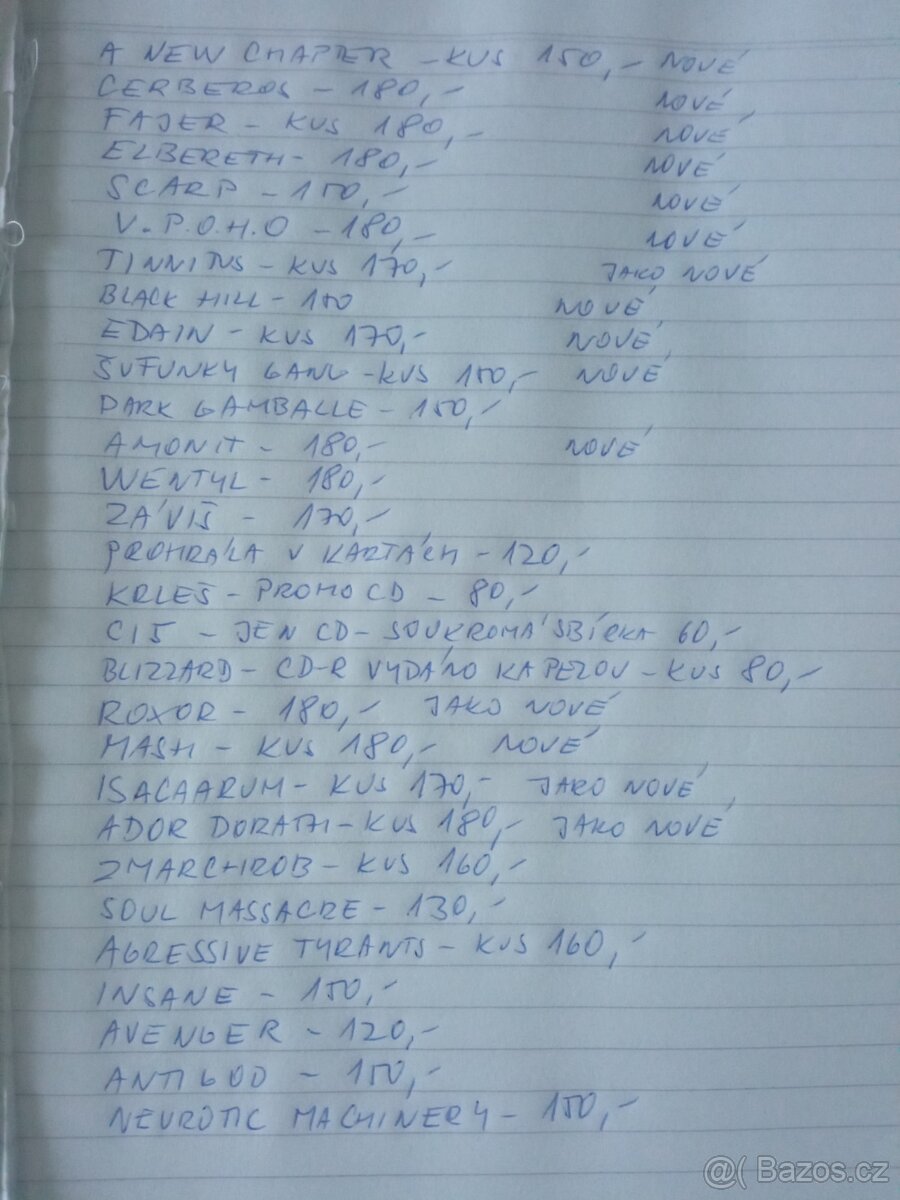 A NEW CHAPTER - KUS 150,- NOVÉ
CERBEROS - 180,- NOVÉ
FAJER - KUS 180,- NOVÉ
ELBERETH - 180,- NOVÉ
SCARP - 150,- NOVÉ
V.P.O.H.O - 180,- NOVÉ
TINNITUS - KUS 170,- JAKO NOVÉ
BLACK HILL - 150 NOVÉ
EDAIN - KUS 170,- NOVÉ
ŠUFUNKY GANG - KUS 150,- NOVÉ
DARK GAMBALLE - 150,-
AMONIT - 180,- NOVÉ
WENTYL - 180,-
ZÁVIŠ - 170,-
PROHRÁLA V KARTÁCH - 120,-
KRLEŠ - PROMO CD - 80,-
C15 - JEN CD - SOUKROMÁ SBÍRKA 60,-
BLIZZARD - CD-R VYDÁNO KAPELOU - KUS 80,-
ROXOR - 180,- JAKO NOVÉ
MASH - KUS 180,- NOVÉ
ISACAARUM - KUS 170,- JAKO NOVÉ
ADOR DORATH - KUS 180,- JAKO NOVÉ
ZMARCHROB - KUS 160,-
SOUL MASSACRE - 130,-
AGRESSIVE TYRANTS - KUS 160,-
INSANE - 150,-
AVENGER - 120,-
ANTIGOD - 150,-
NEUROTIC MACHINERY - 150,-
@( Bazos.cz